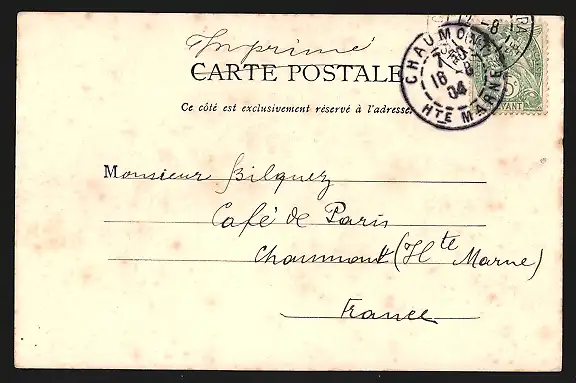 Imprimé
CARTE POSTALE
Ce côté est exclusivement réservé à l'adresse.
CHAUMONT
16 -8
04
HTE MARNE
Monsieur Bilquez
Café de Paris
Chaumont (Hte Marne)
France